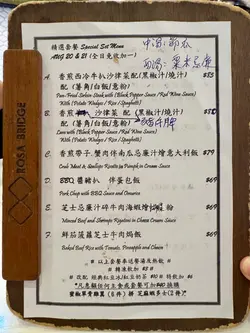 ROSA BRIDGE
精選套餐 Special Set Menu
AUG 20 & 21 (全日免收加一)
中湯: 節瓜
西湯: 粟米忌廉
A. 香煎西冷牛扒沙律菜(黑椒汁/燒汁) $83
配 (薯角/白飯/意粉)
Pan-Fried Sirloin Steak with (Black Pepper Sauce / Red Wine Sauce)
With (Potato Wedges / Rice / Spaghetti)
B. 香煎 沙律菜 配(黑椒汁
配(薯角/白飯/意粉)
with (Black Pepper Sauce / Red Wine Sauce)
With (Potato Wedges / Rice / Spaghetti)
C. 香煎帶子.蟹肉伴南瓜忌廉汁燴意大利飯 $79
Crab Meat & Scallops Risotto in Pumpkin in Cream Sauce
D. BBQ醬豬扒 伴蛋包飯 $69
Pork Chop with BBQ Sauce and Omurice
E. 芝士忌廉汁碎牛肉海蝦燴 粉 $69
Minced Beef and Shrimps Rigatoni in Cheese Cream Sauce
F. 鮮茄菠蘿芝士牛肉焗飯 $69
Baked Beef Rice with Tomato, Pineapple and Cheese
# 以上套餐奉送餐湯及熱飲
# 轉凍飲加 $3 #